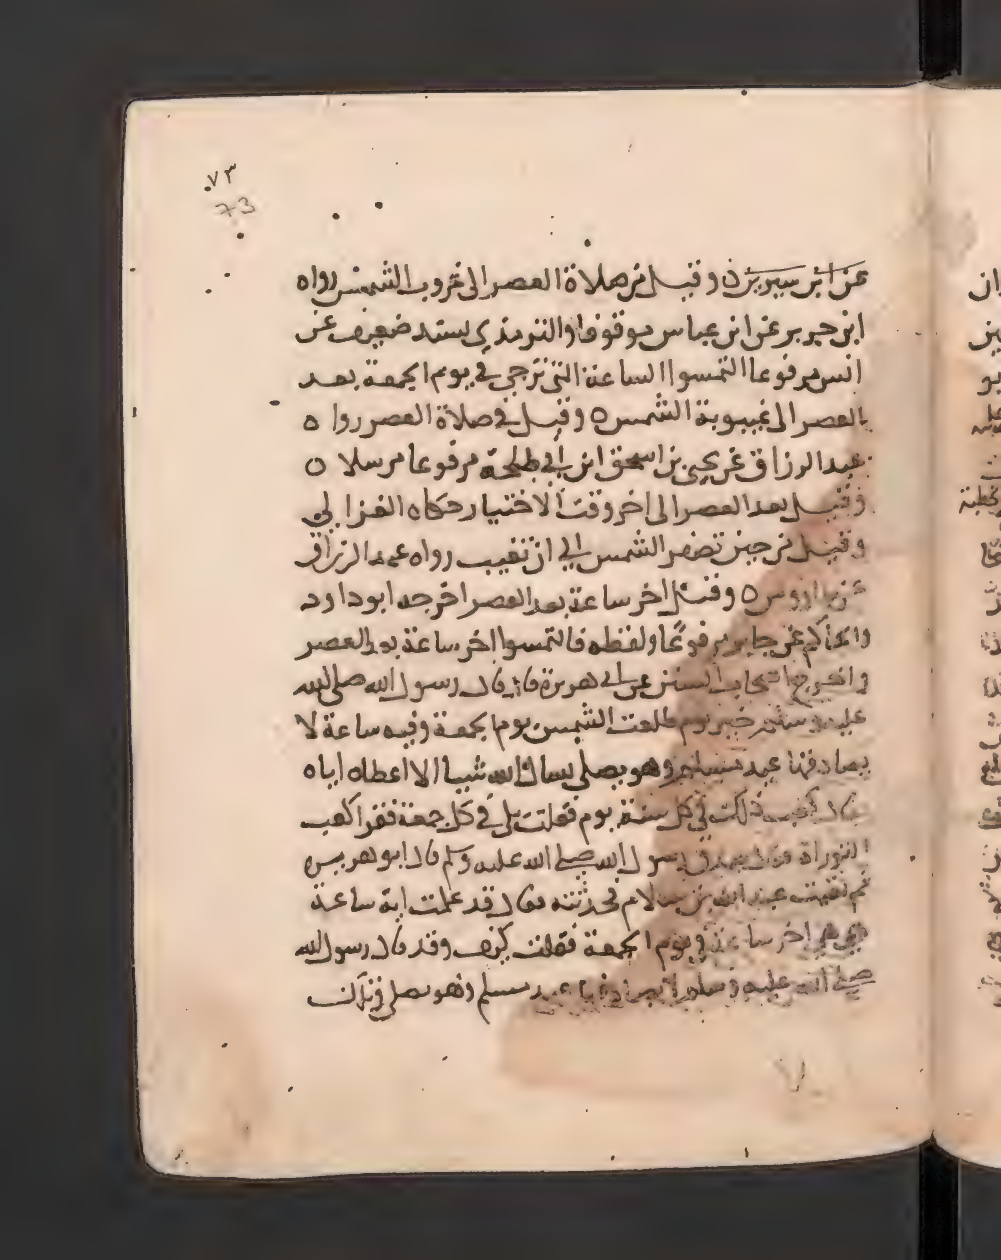 ٧٣
73
عن ابن سيرين ٥ وقيل من صلاة العصر الى غروب الشمس رواه
ابن جرير عن ابن عباس موقوفا والترمذي بسند ضعيف عن
انس مرفوعا التمسوا الساعة التي ترجى في يوم الجمعة بعد
العصر الى غيبوبة الشمس ٥ وقيل في صلاة العصر روا ٥
عبد الرزاق عن يحيى بن اسحق ابن ابي طلحة مرفوعا مرسلا ٥
وقيل بعد العصر الى اخر وقت الاختيار حكاه الغزالي
وقيل من حين تصفر الشمس الى ان تغيب رواه عبد الرزاق
عن طاوس ٥ وقيل اخر ساعة بعد العصر اخرجه ابو داود
والحاكم عن جابر مرفوعا ولفظه فالتمسوا اخر ساعة بعد العصر
واخرج اصحاب السنن عن ابي هريرة قال قال رسول الله صلى الله
عليه وسلم خير يوم طلعت الشمس يوم الجمعة وفيه ساعة لا
يصادفها عبد مسلم وهو يصلي يسال الله شيا الا اعطاه اياه
قال كعب ذلك في كل سنة يوم فقلت بلى في كل جمعة فقرا كعب
التوراة فقال صدق رسول الله صلى الله عليه وسلم قال ابو هريره
ثم لقيت عبد الله بن سلام فحدثته فقال قد علمت اية ساعة
هي هي اخر ساعة في يوم الجمعة فقلت كيف وقد قال رسول الله
صلى الله عليه وسلم لا يصادفها عبد مسلم وهو يصلي وتلك